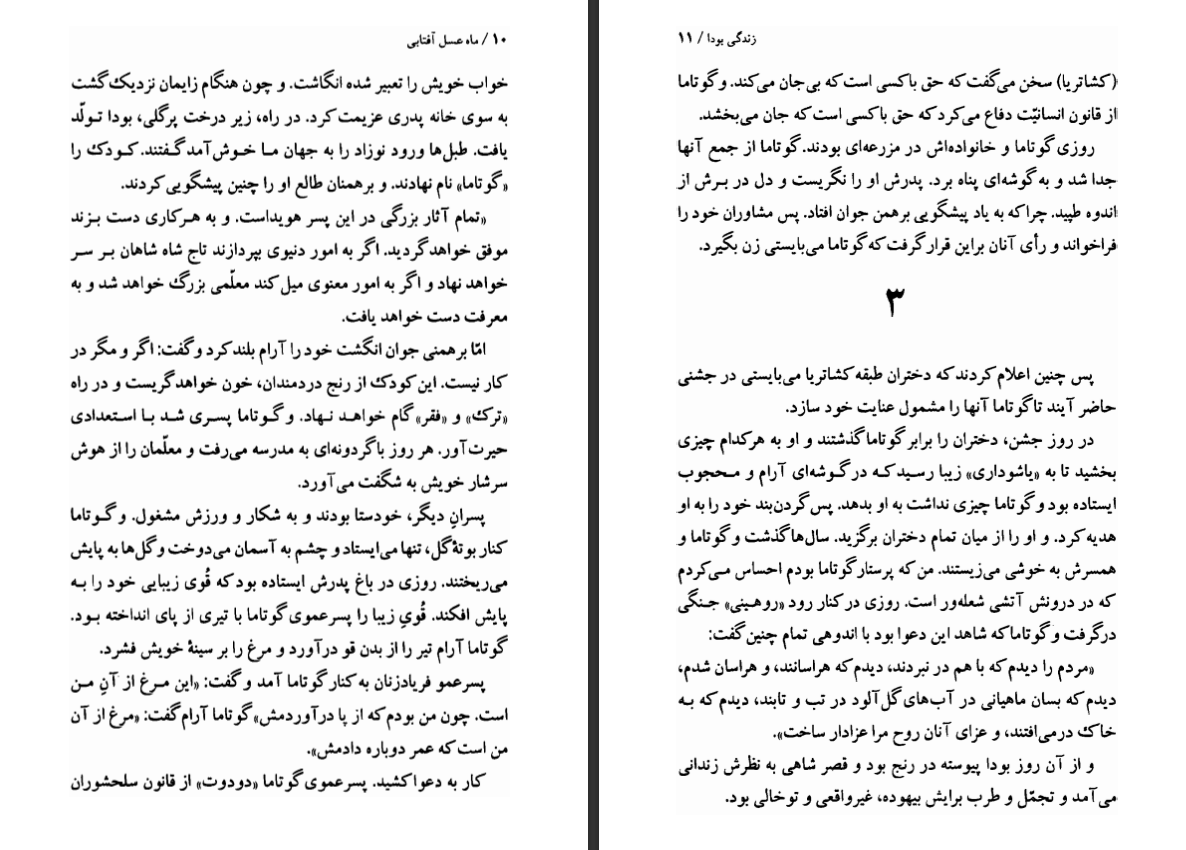 ۱۰ / ماه عسل آفتابی
خواب خویش را تعبیر شده انگاشت. و چون هنگام زایمان نزدیک گشت
به سوی خانه پدری عزیمت کرد. در راه، زیر درخت پرگلی، بودا تولّد
یافت. طبل‌ها ورود نوزاد را به جهان مـا خـوش‌آمد گـفتند. کـودک را
«گوتاما» نام نهادند. و برهمنان طالع او را چنین پیشگویی کردند.
«تمام آثار بزرگی در این پسر هویداست. و به هـرکاری دست بـزند
موفق خواهد گردید. اگر به امور دنیوی بپردازند تاج شاه شاهان بـر سـر
خواهد نهاد و اگر به امور معنوی میل کند معلّمی بزرگ خواهد شد و به
معرفت دست خواهد یافت.
امّا برهمنی جوان انگشت خود را آرام بلند کرد و گفت: اگر و مگر در
کار نیست. این کودک از رنج دردمندان، خون خواهد گریست و در راه
«ترک» و «فقر» گام خواهـد نـهاد. و گـوتاما پسـری شـد بـا اسـتعدادی
حیرت‌آور. هر روز با گردونه‌ای به مدرسه می‌رفت و معلّمان را از هوش
سرشار خویش به شگفت می‌آورد.
پسرانِ دیگر، خودستا بودند و به شکار و ورزش مشغول. و گـوتاما
کنار بوتهٔ گل، تنها می‌ایستاد و چشم به آسمان می‌دوخت و گل‌ها به پایش
می‌ریختند. روزی در باغ پدرش ایستاده بود که قُوی زیبایی خود را بـه
پایش افکند. قُویِ زیبا را پسرعموی گوتاما با تیری از پای انداخته بـود.
گوتاما آرام تیر را از بدن قو درآورد و مرغ را بر سینهٔ خویش فشرد.
پسرعمو فریادزنان به کنار گوتاما آمد و گفت: «این مـرغ از آنِ مـن
است. چون من بودم که از پا درآوردمش» گوتاما آرام گفت: «مرغ از آن
من است که عمر دوباره دادمش».
کار به دعوا کشید. پسرعموی گوتاما «دودوت» از قانون سلحشوران
زندگی بودا / ۱۱
(کشاتریا) سخن می‌گفت که حق با کسی است که بی‌جان می‌کند. و گوتاما
از قانون انسانیّت دفاع می‌کرد که حق با کسی است که جان می‌بخشد.
روزی گوتاما و خانواده‌اش در مزرعه‌ای بودند. گوتاما از جمع آنها
جدا شد و به گوشه‌ای پناه برد. پدرش او را نگریست و دل در بـرش از
اندوه طپید. چرا که به یاد پیشگویی برهمن جوان افتاد. پس مشاوران خود را
فراخواند و رأی آنان براین قرار گرفت که گوتاما می‌بایستی زن بگیرد.
۳
پس چنین اعلام کردند که دختران طبقه کشاتریا می‌بایستی در جشنی
حاضر آیند تا گوتاما آنها را مشمول عنایت خود سازد.
در روز جشن، دختران را برابر گوتاما گذشتند و او به هرکدام چیزی
بخشید تا به «یاشوداری» زیبا رسیـد کـه در گـوشه‌ای آرام و مـحجوب
ایستاده بود و گوتاما چیزی نداشت به او بدهد. پس گردن‌بند خود را به او
هدیه کرد. و او را از میان تمام دختران برگزید. سال‌ها گذشت و گوتاما و
همسرش به خوشی می‌زیستند. من که پرستار گوتاما بودم احساس مـی‌کردم
که در درونش آتشی شعله‌ور است. روزی در کنار رود «روهـینی» جـنگی
درگرفت و گوتاما که شاهد این دعوا بود با اندوهی تمام چنین گفت:
«مردم را دیدم که با هم در نبردند، دیدم که هراسانند، و هراسان شدم،
دیدم که بسان ماهیانی در آب‌های گل‌آلود در تب و تابند، دیدم که بـه
خاک درمی‌افتند، و عزای آنان روح مرا عزادار ساخت».
و از آن روز بودا پیوسته در رنج بود و قصر شاهی به نظرش زندانی
می‌آمد و تجمّل و طرب برایش بیهوده، غیرواقعی و توخالی بود.